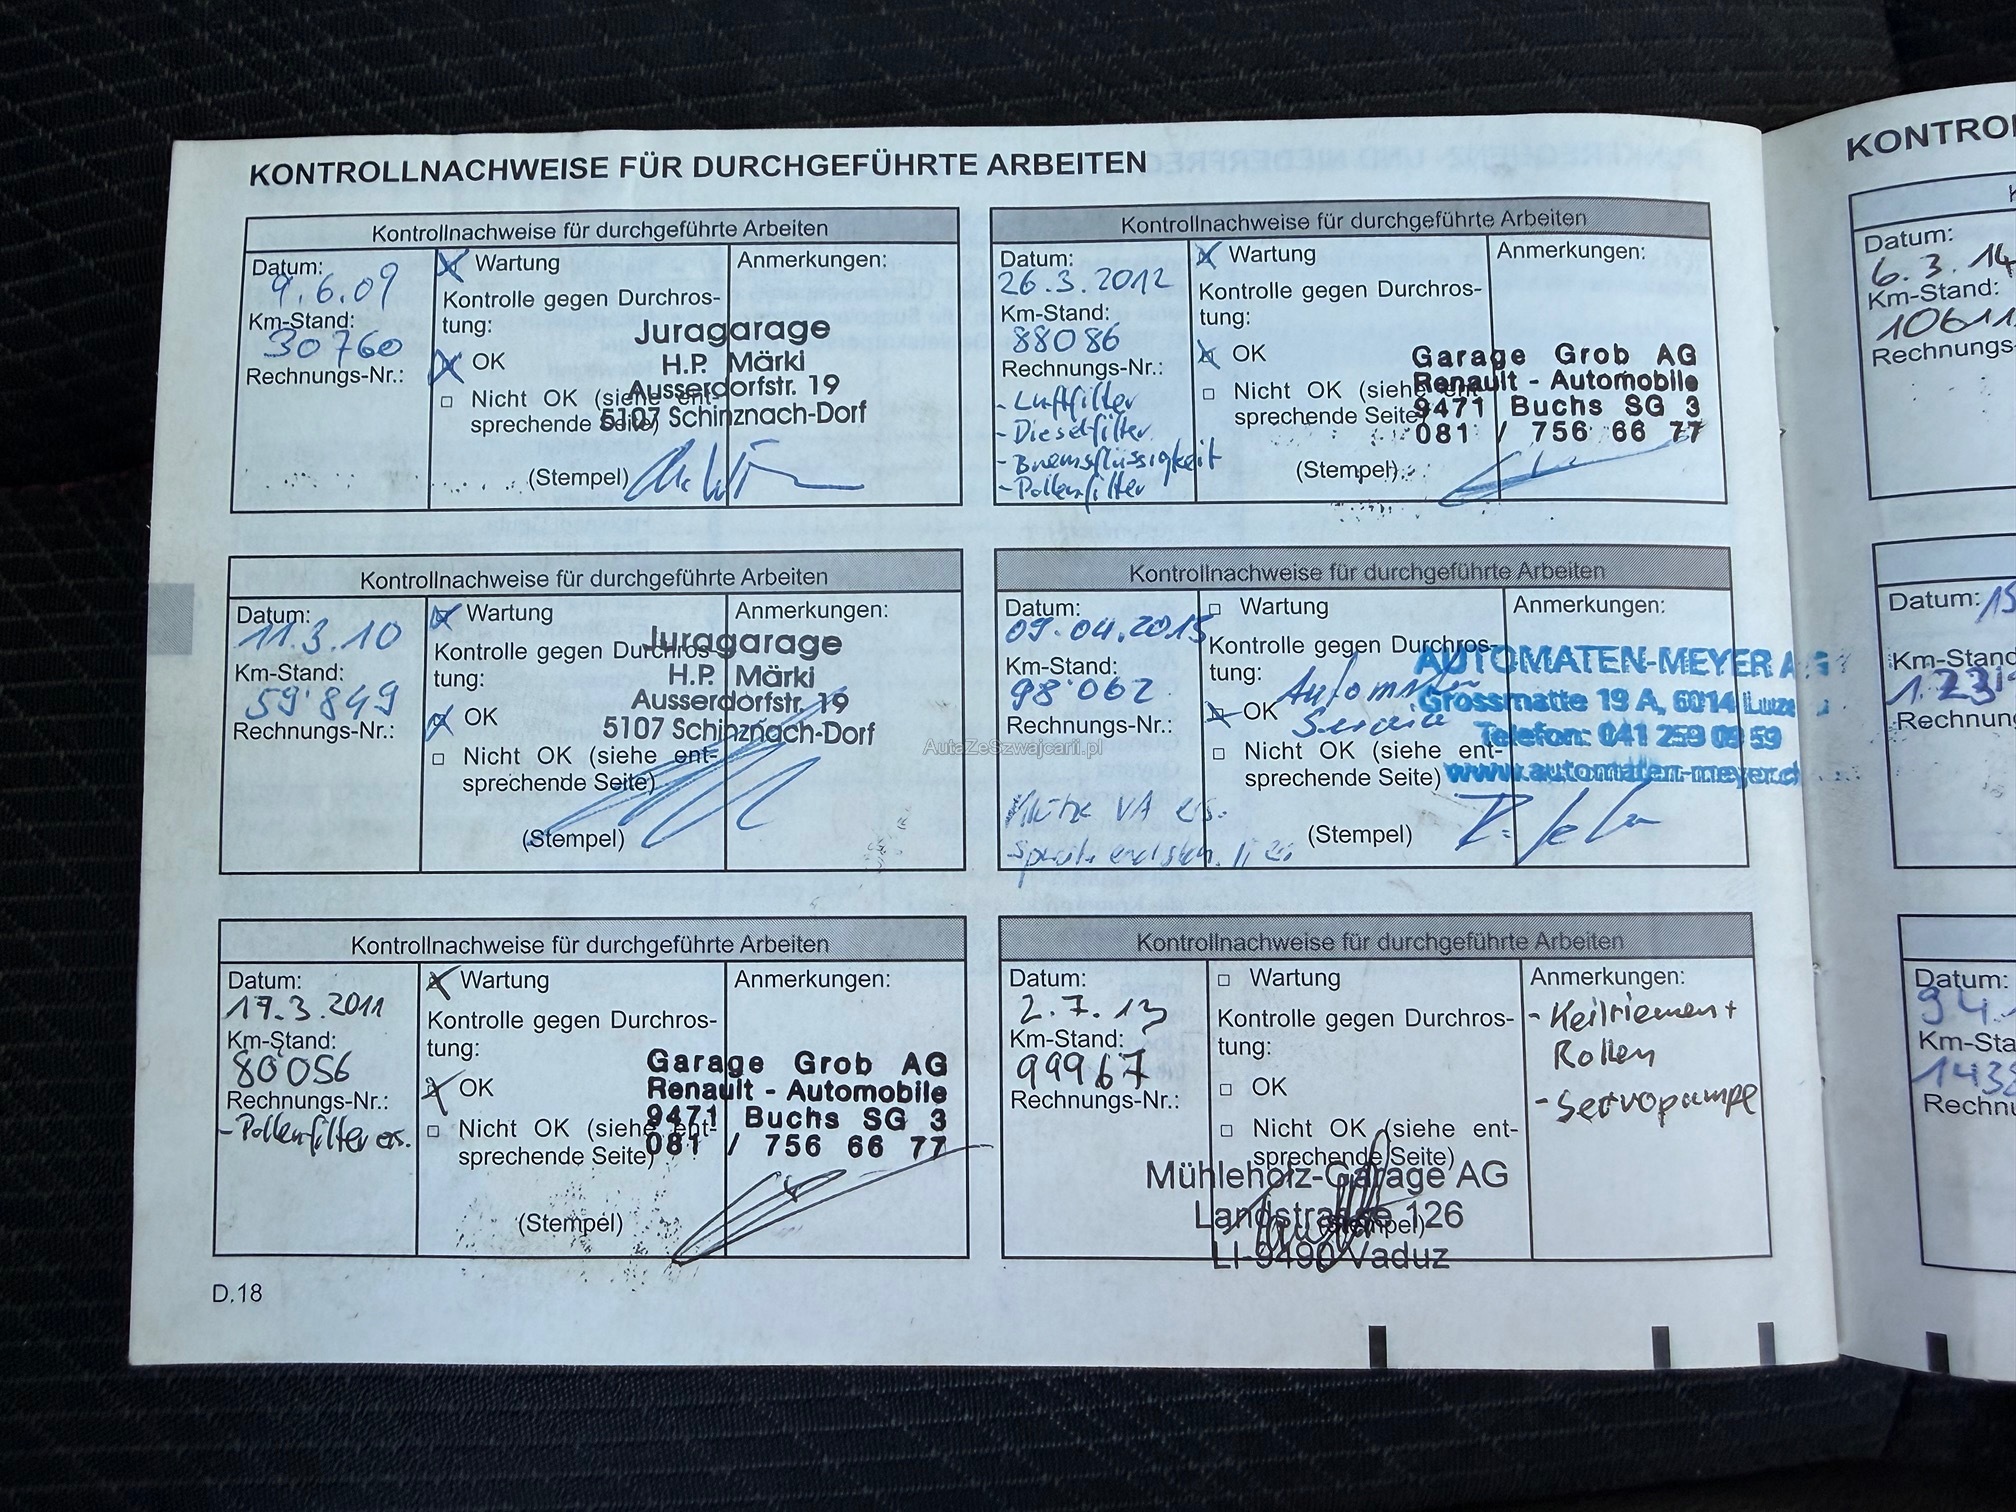 KONTROLLNACHWEISE FÜR DURCHGEFÜHRTE ARBEITEN
Kontrollnachweise für durchgeführte Arbeiten
Datum:
9.6.09
Km-Stand:
30760
Rechnungs-Nr.:
Wartung
Kontrolle gegen Durchros-
tung:
OK
Nicht OK (siehe ent-
sprechende Seite)
(Stempel)
Anmerkungen:
Juragarage
H.P. Märki
Ausserdorfstr. 19
5107 Schinznach-Dorf
Kontrollnachweise für durchgeführte Arbeiten
Datum:
11.3.10
Km-Stand:
59'849
Rechnungs-Nr.:
Wartung
Kontrolle gegen Durchros-
tung:
OK
Nicht OK (siehe ent-
sprechende Seite)
(Stempel)
Anmerkungen:
Juragarage
H.P. Märki
Ausserdorfstr. 19
5107 Schinznach-Dorf
Kontrollnachweise für durchgeführte Arbeiten
Datum:
17.3.2011
Km-Stand:
80'056
Rechnungs-Nr.:
- Pollenfilter ers.
Wartung
Kontrolle gegen Durchros-
tung:
OK
Nicht OK (siehe ent-
sprechende Seite)
(Stempel)
Anmerkungen:
Garage Grob AG
Renault - Automobile
9471 Buchs SG 3
081 / 756 66 77
D.18
Kontrollnachweise für durchgeführte Arbeiten
Datum:
26.3.2012
Km-Stand:
88086
Rechnungs-Nr.:
- Luftfilter
- Dieselfilter
- Bremsflüssigkeit
- Pollenfilter
Wartung
Kontrolle gegen Durchros-
tung:
OK
Nicht OK (siehe ent-
sprechende Seite)
(Stempel)
Anmerkungen:
Garage Grob AG
Renault - Automobile
9471 Buchs SG 3
081 / 756 66 77
Kontrollnachweise für durchgeführte Arbeiten
Datum:
09.04.2013
Km-Stand:
98'062
Rechnungs-Nr.:
VA ers.
Wartung
Kontrolle gegen Durchros-
tung:
OK
Automaten
Service
Nicht OK (siehe ent-
sprechende Seite)
(Stempel)
Anmerkungen:
AUTOMATEN-MEYER AG
Grossmatte 19 A, 6014 Luze
Telefon: 041 259 09 59
www.automaten-meyer.ch
Kontrollnachweise für durchgeführte Arbeiten
Datum:
2.7.13
Km-Stand:
99967
Rechnungs-Nr.:
Wartung
Kontrolle gegen Durchros-
tung:
OK
Nicht OK (siehe ent-
sprechende Seite)
(Stempel)
Mühleholz-Garage AG
Landstrasse 126
LI-9490 Vaduz
Anmerkungen:
- Keilriemen +
Rollen
- Servopumpe
AutaZeSzwajcarii.pl
KONTROL
Datum:
6.3.14
Km-Stand:
10611
Rechnungs-
Datum:
15
Km-Stand
123
Rechnung
Datum:
Km-Sta
143
Rechn